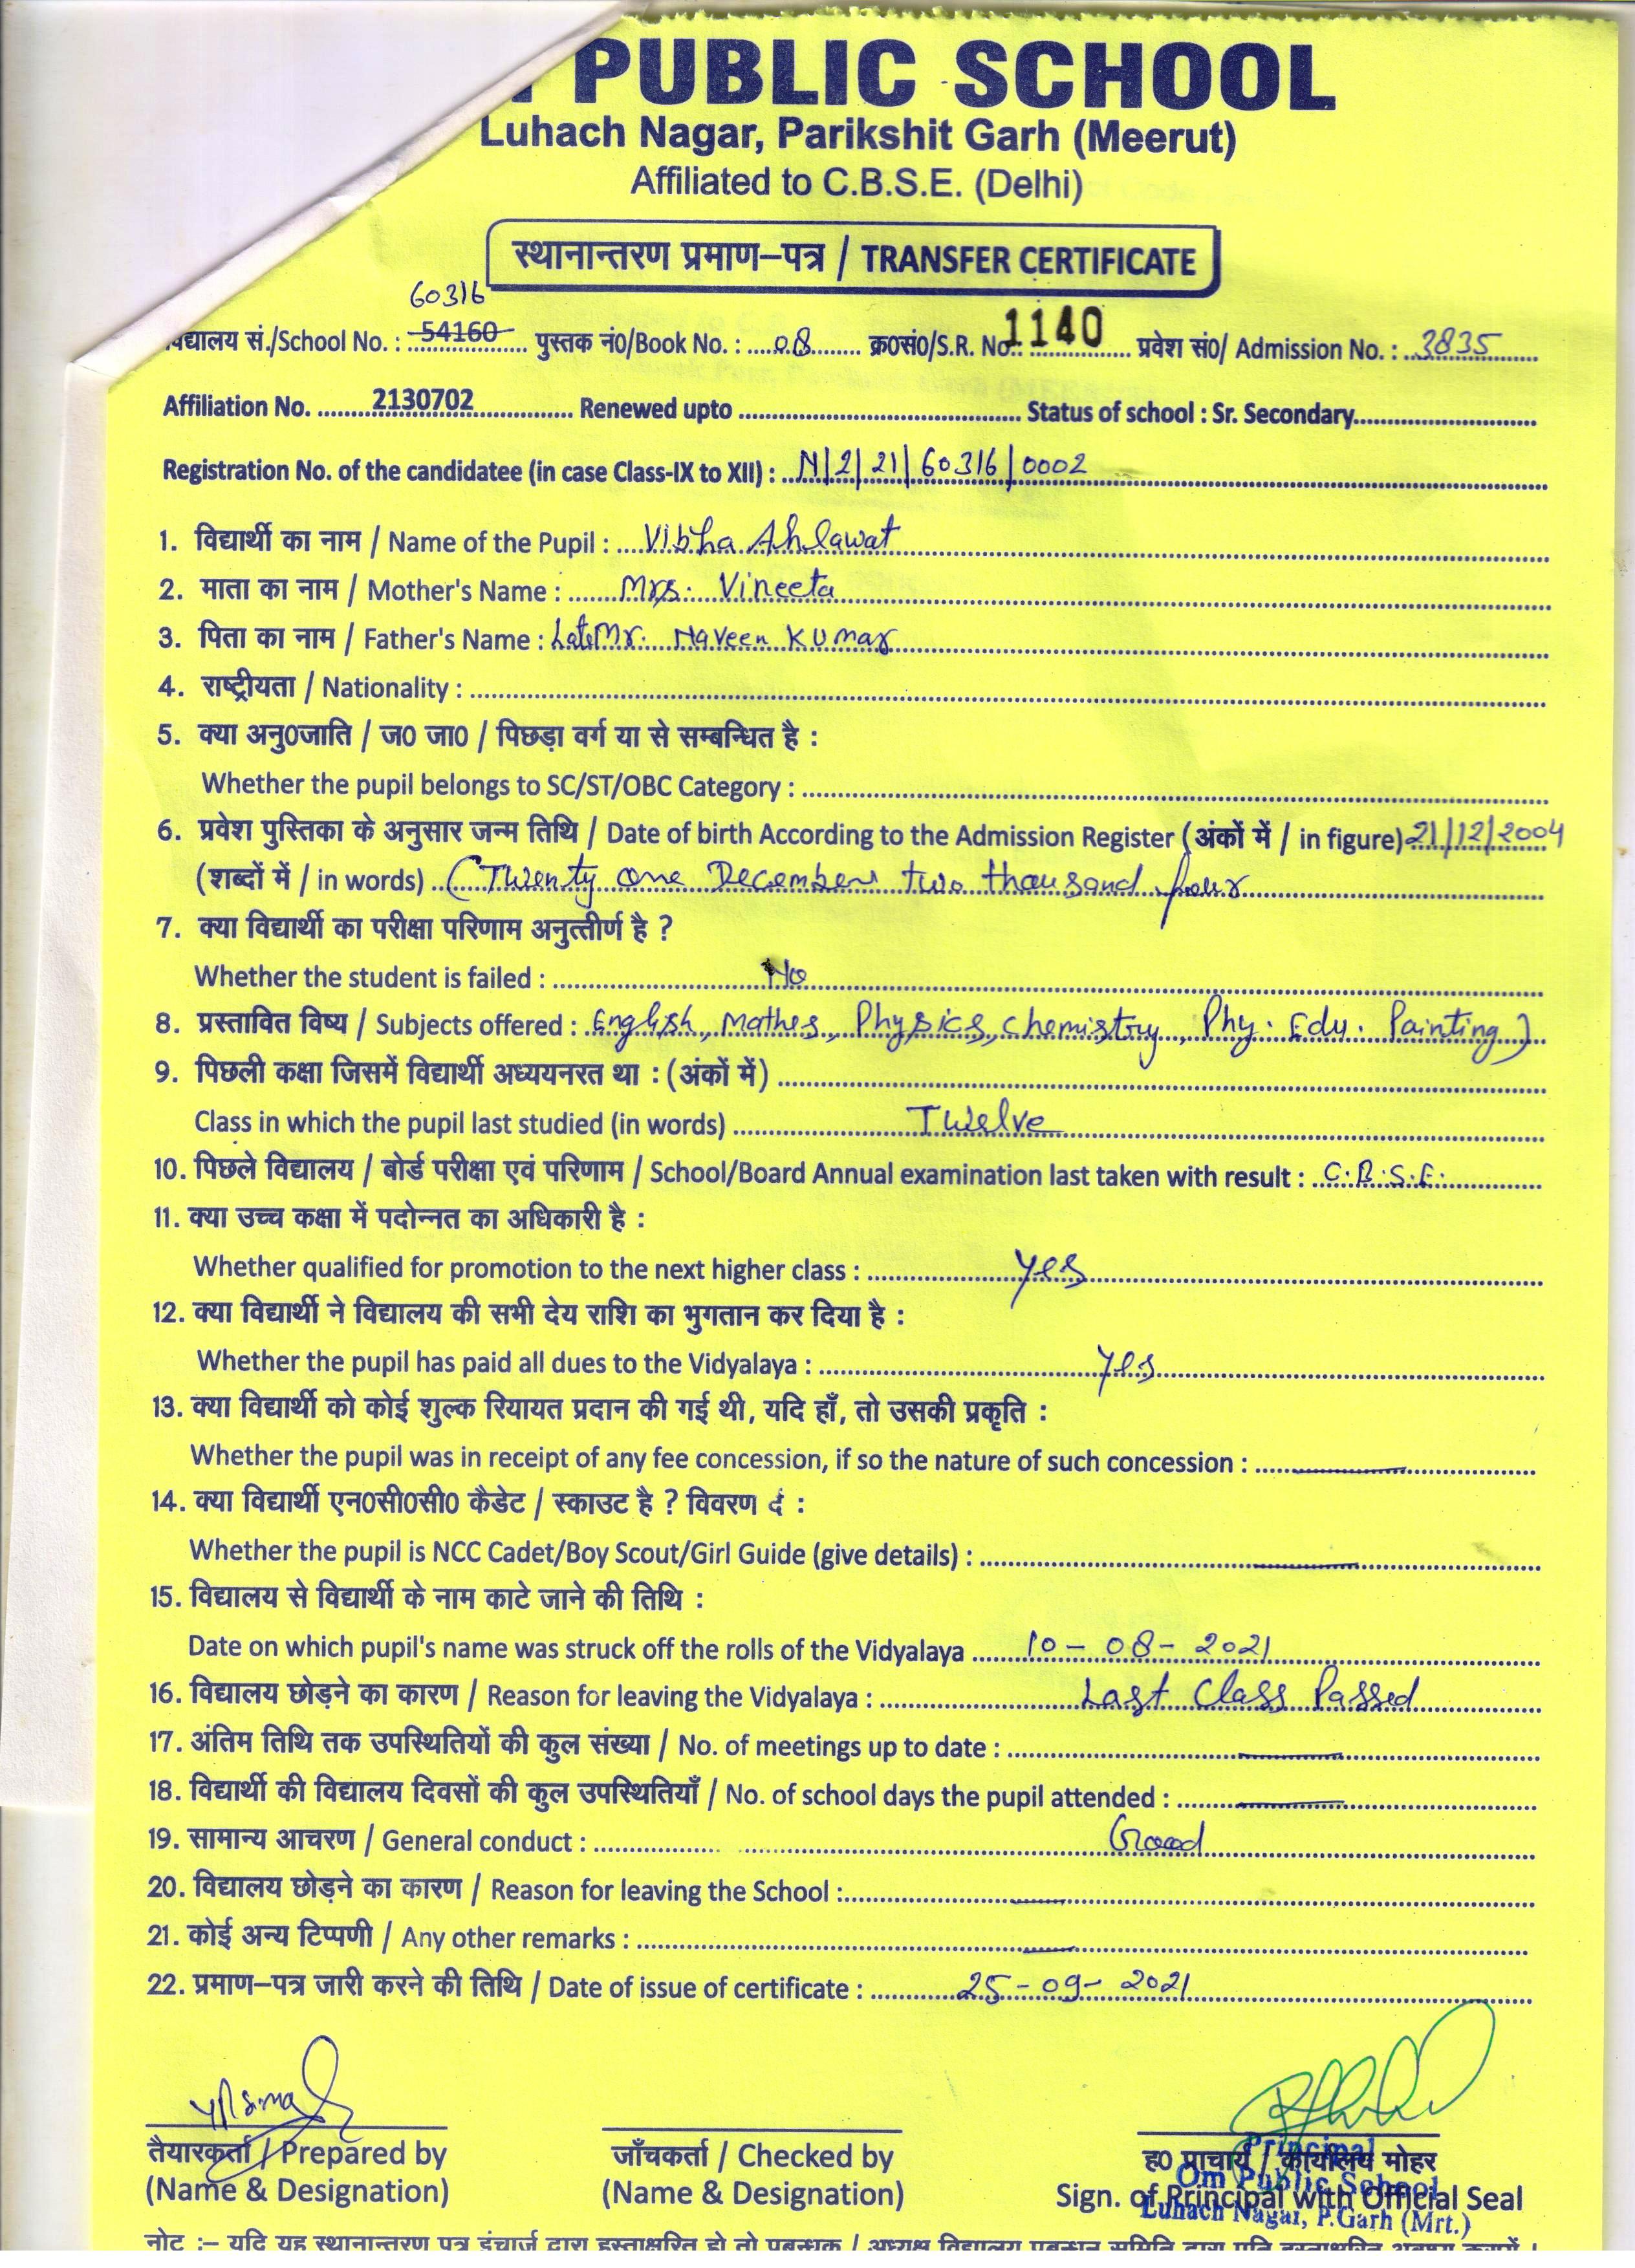 PUBLIC SCHOOL
Luhach Nagar, Parikshit Garh (Meerut)
Affiliated to C.B.S.E. (Delhi)
स्थानान्तरण प्रमाण–पत्र / TRANSFER CERTIFICATE
60316
विद्यालय सं./School No. : 54160 पुस्तक नं0/Book No. : 08 क्र0सं0/S.R. No. 1140 प्रवेश सं0/ Admission No. : 3835
Affiliation No. 2130702 Renewed upto Status of school : Sr. Secondary
Registration No. of the candidatee (in case Class-IX to XII) : N/2/21/60316/0002
1. विद्यार्थी का नाम / Name of the Pupil : Vibha Ahlawat
2. माता का नाम / Mother's Name : Mrs. Vineeta
3. पिता का नाम / Father's Name : Late Mr. Naveen Kumar
4. राष्ट्रीयता / Nationality :
5. क्या अनु0जाति / ज0 जा0 / पिछड़ा वर्ग या से सम्बन्धित है :
Whether the pupil belongs to SC/ST/OBC Category :
6. प्रवेश पुस्तिका के अनुसार जन्म तिथि / Date of birth According to the Admission Register (अंकों में / in figure) 21/12/2004
(शब्दों में / in words) (Twenty one December two thousand four
7. क्या विद्यार्थी का परीक्षा परिणाम अनुत्तीर्ण है ?
Whether the student is failed : No
8. प्रस्तावित विष्य / Subjects offered : English, Mathes, Physics, chemistry, Phy. Edu. Painting)
9. पिछली कक्षा जिसमें विद्यार्थी अध्ययनरत था : (अंकों में)
Class in which the pupil last studied (in words) Twelve
10. पिछले विद्यालय / बोर्ड परीक्षा एवं परिणाम / School/Board Annual examination last taken with result : C.B.S.E.
11. क्या उच्च कक्षा में पदोन्नत का अधिकारी है :
Whether qualified for promotion to the next higher class : yes
12. क्या विद्यार्थी ने विद्यालय की सभी देय राशि का भुगतान कर दिया है :
Whether the pupil has paid all dues to the Vidyalaya : yes
13. क्या विद्यार्थी को कोई शुल्क रियायत प्रदान की गई थी, यदि हाँ, तो उसकी प्रकृति :
Whether the pupil was in receipt of any fee concession, if so the nature of such concession :
14. क्या विद्यार्थी एन0सी0सी0 कैडेट / स्काउट है ? विवरण दं :
Whether the pupil is NCC Cadet/Boy Scout/Girl Guide (give details) :
15. विद्यालय से विद्यार्थी के नाम काटे जाने की तिथि :
Date on which pupil's name was struck off the rolls of the Vidyalaya 10-08-2021
16. विद्यालय छोड़ने का कारण / Reason for leaving the Vidyalaya : Last Class Passed
17. अंतिम तिथि तक उपस्थितियों की कुल संख्या / No. of meetings up to date :
18. विद्यार्थी की विद्यालय दिवसों की कुल उपस्थितियाँ / No. of school days the pupil attended :
19. सामान्य आचरण / General conduct : Good
20. विद्यालय छोड़ने का कारण / Reason for leaving the School :
21. कोई अन्य टिप्पणी / Any other remarks :
22. प्रमाण–पत्र जारी करने की तिथि / Date of issue of certificate : 25-09-2021
तैयारकर्ता / Prepared by जाँचकर्ता / Checked by ह0 प्राचार्य / कार्यालय मोहर
(Name & Designation) (Name & Designation) Sign. of Principal with Official Seal
Principal
Om Public School
Luhach Nagar, P.Garh (Mrt.)
नोट :– यदि यह स्थानान्तरण पत्र इंचार्ज द्वारा हस्ताक्षरित हो तो प्रबन्धक / अध्यक्ष विद्यालय प्रबन्धन समिति द्वारा प्रति हस्ताक्षरित अवश्य करायें ।